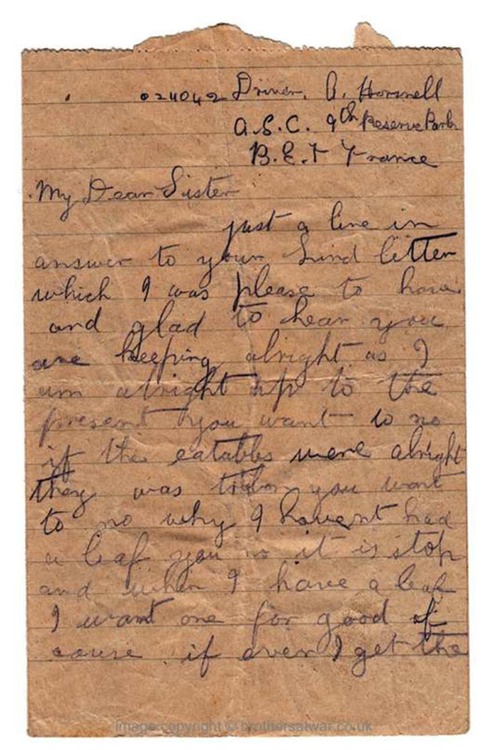 024042 Driver. A. Horsnell
A.S.C. 9th Reserve Park
B.E.F France
My Dear Sister
just a line in
answer to your kind letter
which I was please to have
and glad to hear you
are keeping alright as I
am alright up to the
present you want to no
if the eatables were alright
they was you want
to no why I havent had
a leaf you no it is stop
and when I have a leaf
I want one for good of
cause if ever I get the
image copyright © brothersatwar.co.uk